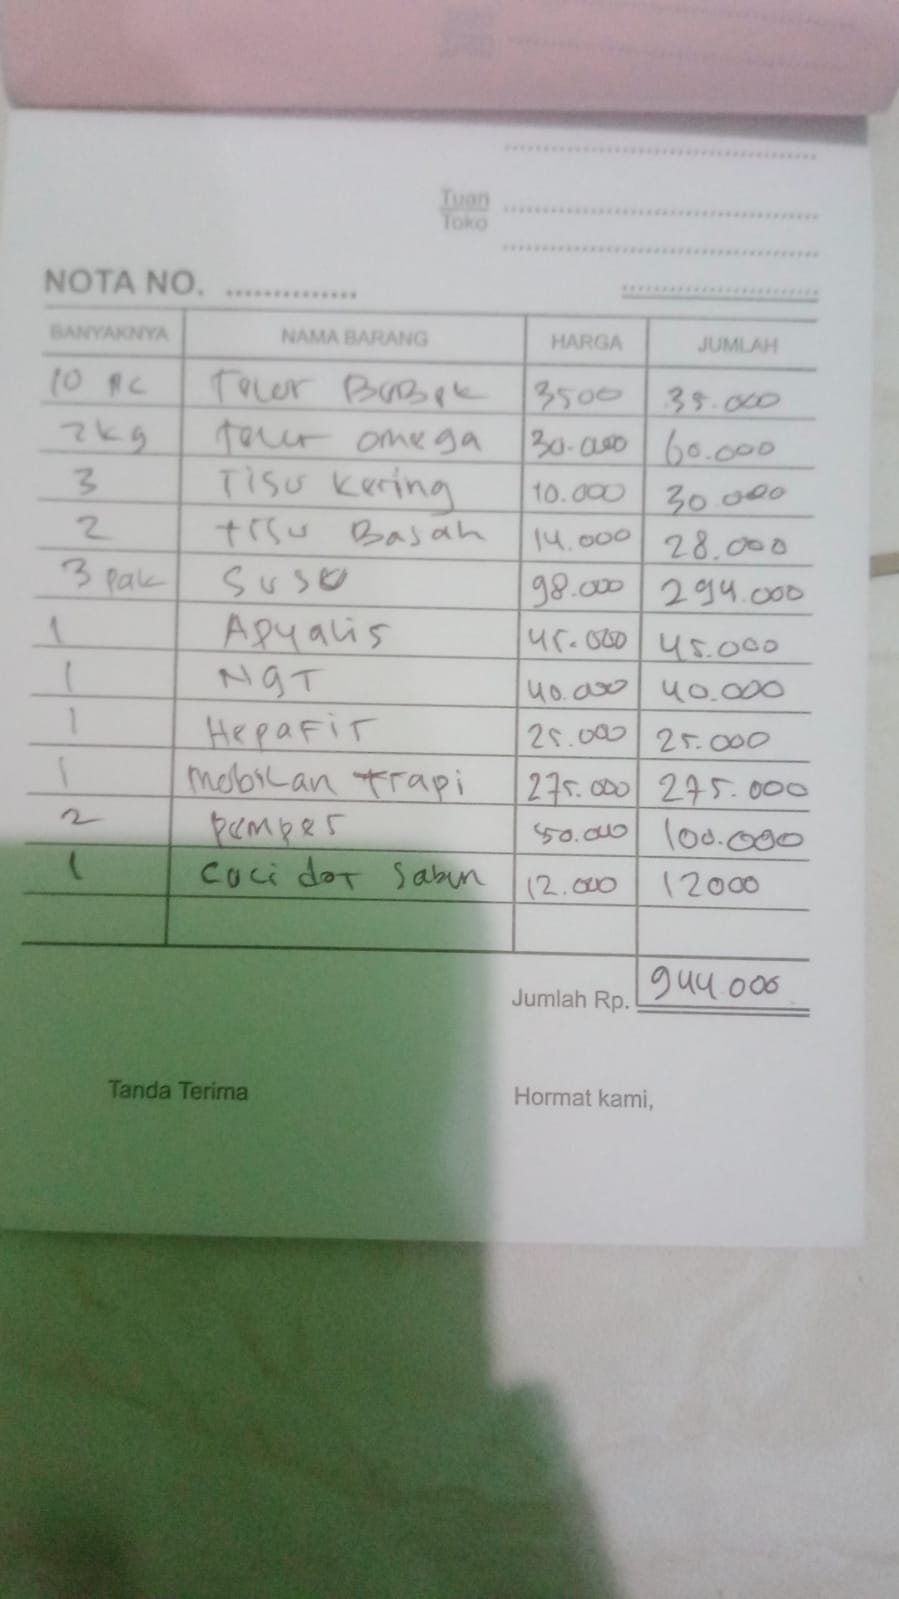 Tuan
Toko
NOTA NO. ..............
BANYAKNYA NAMA BARANG HARGA JUMLAH
10 PC Telor BeBek 3500 35.000
2kg telur omega 30.000 60.000
3 Tisu Kering 10.000 30.000
2 tisu Basah 14.000 28.000
3 pak Susu 98.000 294.000
1 Apyalis 45.000 45.000
1 NGT 40.000 40.000
1 HepaFit 25.000 25.000
1 mobil an trapi 275.000 275.000
2 pempes 50.000 100.000
1 Cuci dot Sabun 12.000 12000
Jumlah Rp. 944.000
Tanda Terima Hormat kami,